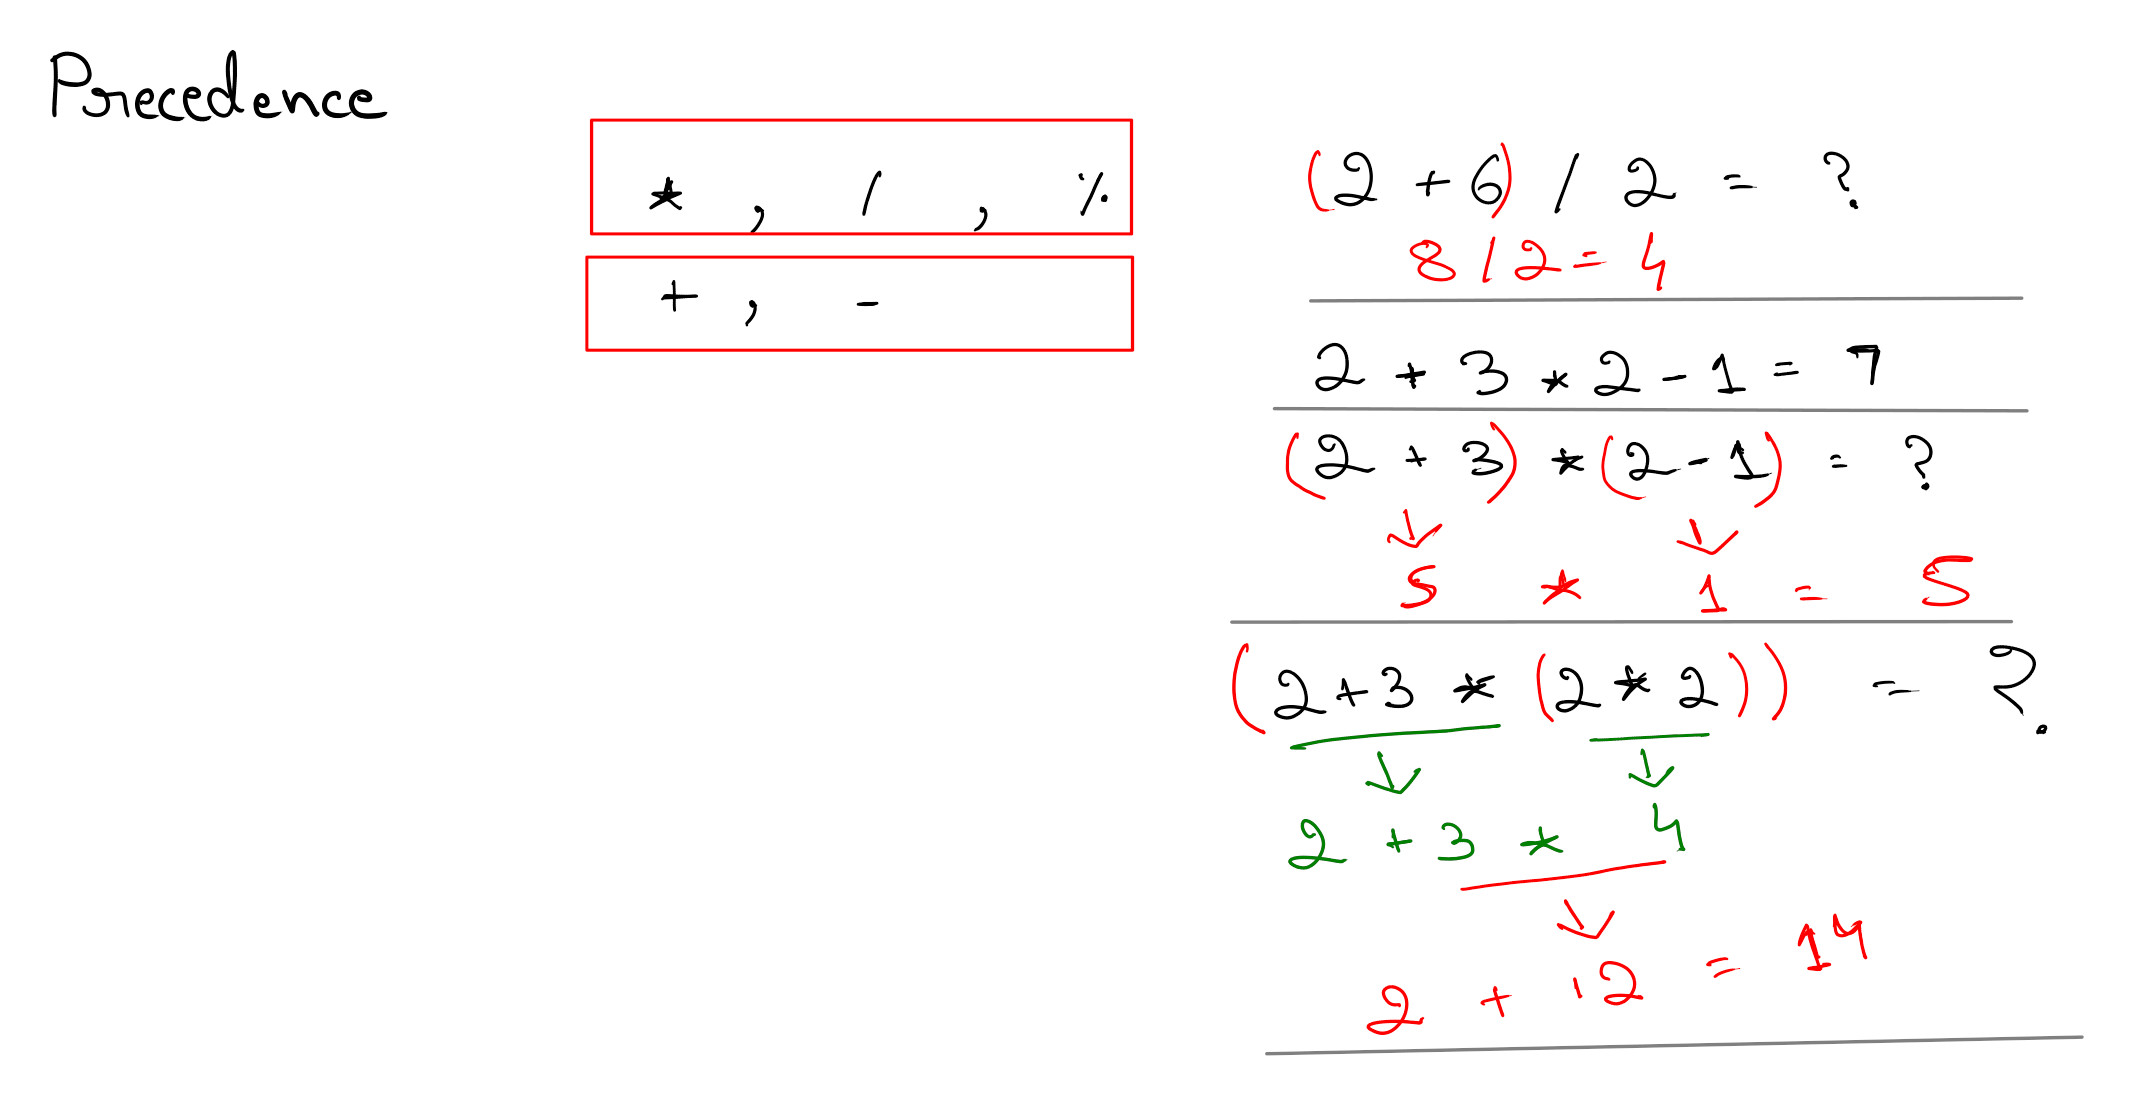 Precedence
* , / , %
+ , -
(2 + 6) / 2 = ?
8 / 2 = 4
2 + 3 * 2 - 1 = 7
(2 + 3) * (2 - 1) = ?
5 * 1 = 5
(2 + 3 * (2 * 2)) = ?
2 + 3 * 4
2 + 12 = 14